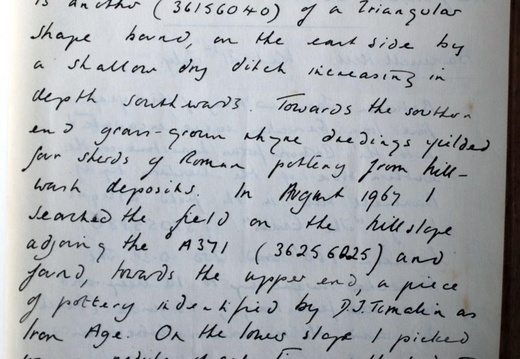 is another (36156040) of a triangular
shape bound, on the east side by
a shallow dry ditch increasing in
depth southwards. Towards the southern
end grass-grown rhyne dredgings yielded
four sherds of Roman pottery from hill-
wash deposits. In August 1967 I
searched the field on the hillslope
adjoing the A371 (36256025) and
found, towards the upper end, a piece
of pottery indentified by D.J. Tomalin as
Iron Age. On the lower slope I picked